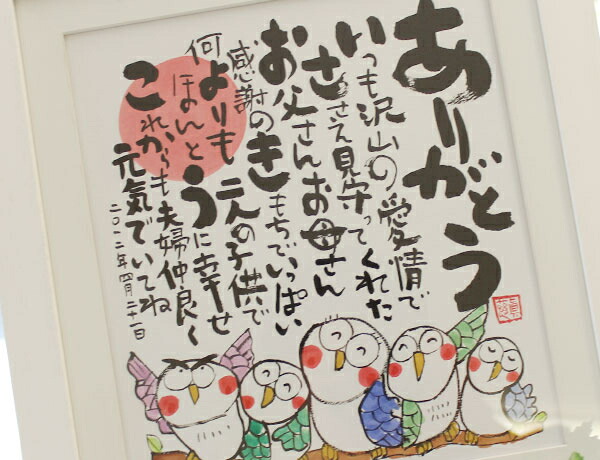 ありがとう
いつも沢山の愛情で
ささえ見守ってくれた
お父さんお母さん
感謝のきもちでいっぱい
何よりも二人の子供で
ほんとうに幸せ
これからも夫婦仲良く
元気でいてね
二〇一二年四月二十一日